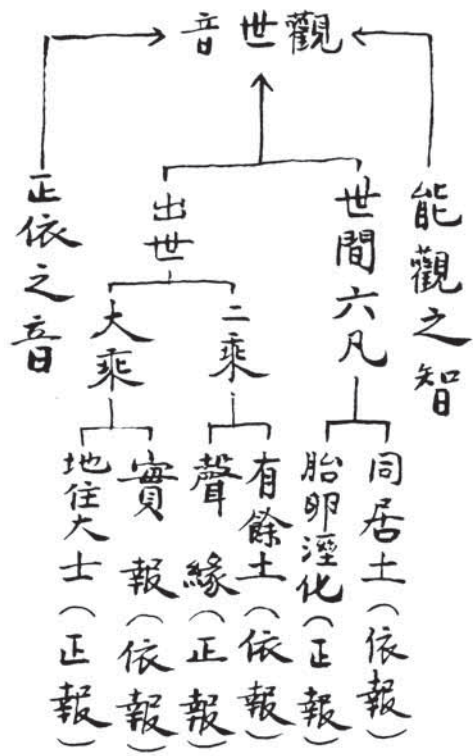 觀世音
能觀之智
世間六凡
同居土（依報）
胎卵溼化（正報）
出世
二乘
有餘土（依報）
聲緣（正報）
大乘
實報（依報）
地住大士（正報）
正依之音